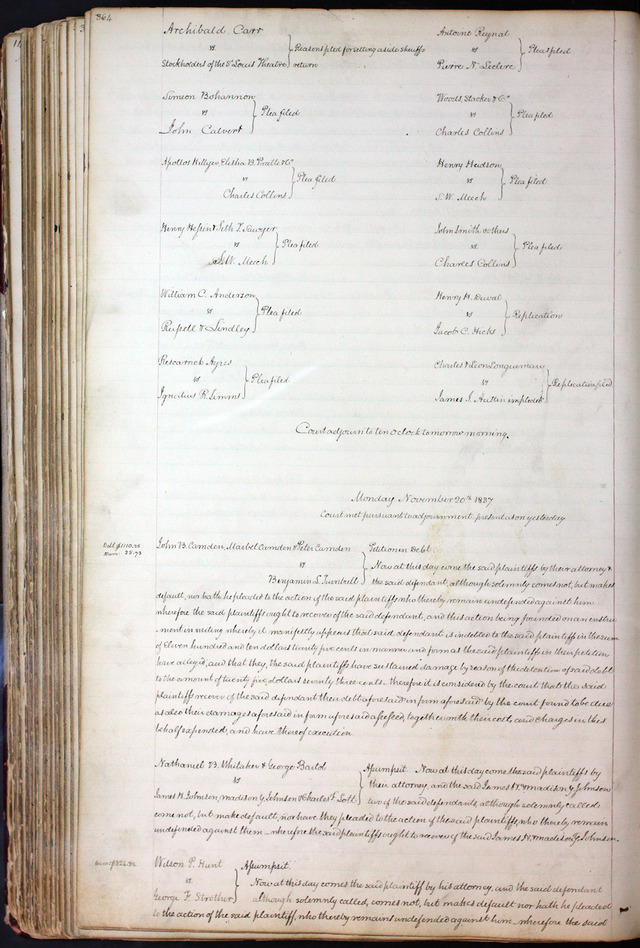 364
Archibald Carr
vs
Stockholders of the St Louis Theatre
Reasons filed for setting aside sheriffs
return
Antoine Reynal
vs
Pierre N. Leclerc
Plea filed
Simeon Bohannon
vs
John Calvert
Plea filed
Woods, Stacker & Co
vs
Charles Collins
Plea filed
Apollos Hillyer, Elisha B. Pratt & Co
vs
Charles Collins
Plea filed
Henry Hudson
vs
S. W. Meech
Plea filed
Henry & Seth T. Sawyer
vs
S. W. Meech
Plea filed
John Smith & others
vs
Charles Collins
Plea filed
William C. Anderson
vs
Russell & Lindley
Plea filed
Henry H. Duval
vs
Jacob C. Hicks
Replication
Ayres
vs
Ignatius R. Simms
Plea filed
Charles & Leon
vs
James S. Austin impleded
Replication filed
Court adjourn to ten o clock tomorrow morning.
Monday November 20th 1837
Court met pursuant to adjournment, present as on yesterday
Debt $1110.25
Dam. 25.73
John B. Camden, Marbel Camden & Peter Camden
vs
Benjamin L. Turnbull
Petition in Debt
Now at this day come the said plaintiffs by their attorney &
the said defendant, although solemnly comes not, but makes
default, nor hath he pleaded to the action of the said plaintiffs who thereby remain undefended against him
wherefore the said plaintiffs ought to recover of the said defendant, and this action being founded on an instru
-ment in writing whereby it manifestly appears that said defendant is indebted to the said plaintiffs in the sum
of Eleven hundred and ten dollars twenty five cents in manner and form as the said plaintiffs in their petition
have alleged, and that they, the said plaintiffs have sustained damage by reason of the detention of said debt
to the amount of twenty five dollars seventy three cents. therefore it is considered by the court that the said
plaintiffs recover of the said defendant their debt aforesaid in form aforesaid by the court found to be due
as also their damages aforesaid in form aforesaid assessed, together with their costs and charges in this
behalf expended, and have thereof execution
Nathaniel B. Whitaker & George Bartol
vs
James H. Johnson, Madison Y. Johnson & Charles F. Lott
Assumpsit Now at this day come the said plaintiffs by
their attorney, and the said James H. & Madison Y. Johnson
two of the said defendants although solemnly called
come not, but make default, nor have they pleaded to the action of the said plaintiffs, who thereby remain
undefended against them – wherefore the said plaintiffs ought to recover of the said James H. & Madison Y. Johnson.
Wilson P. Hunt
vs
George F. Strother
Assumpsit.
Now at this day comes the said plaintiff by his attorney, and the said defendant
although solemnly called, comes not, but makes default nor hath he pleaded
to the action of the said plaintiff, who thereby remains undefended against him – wherefore the said